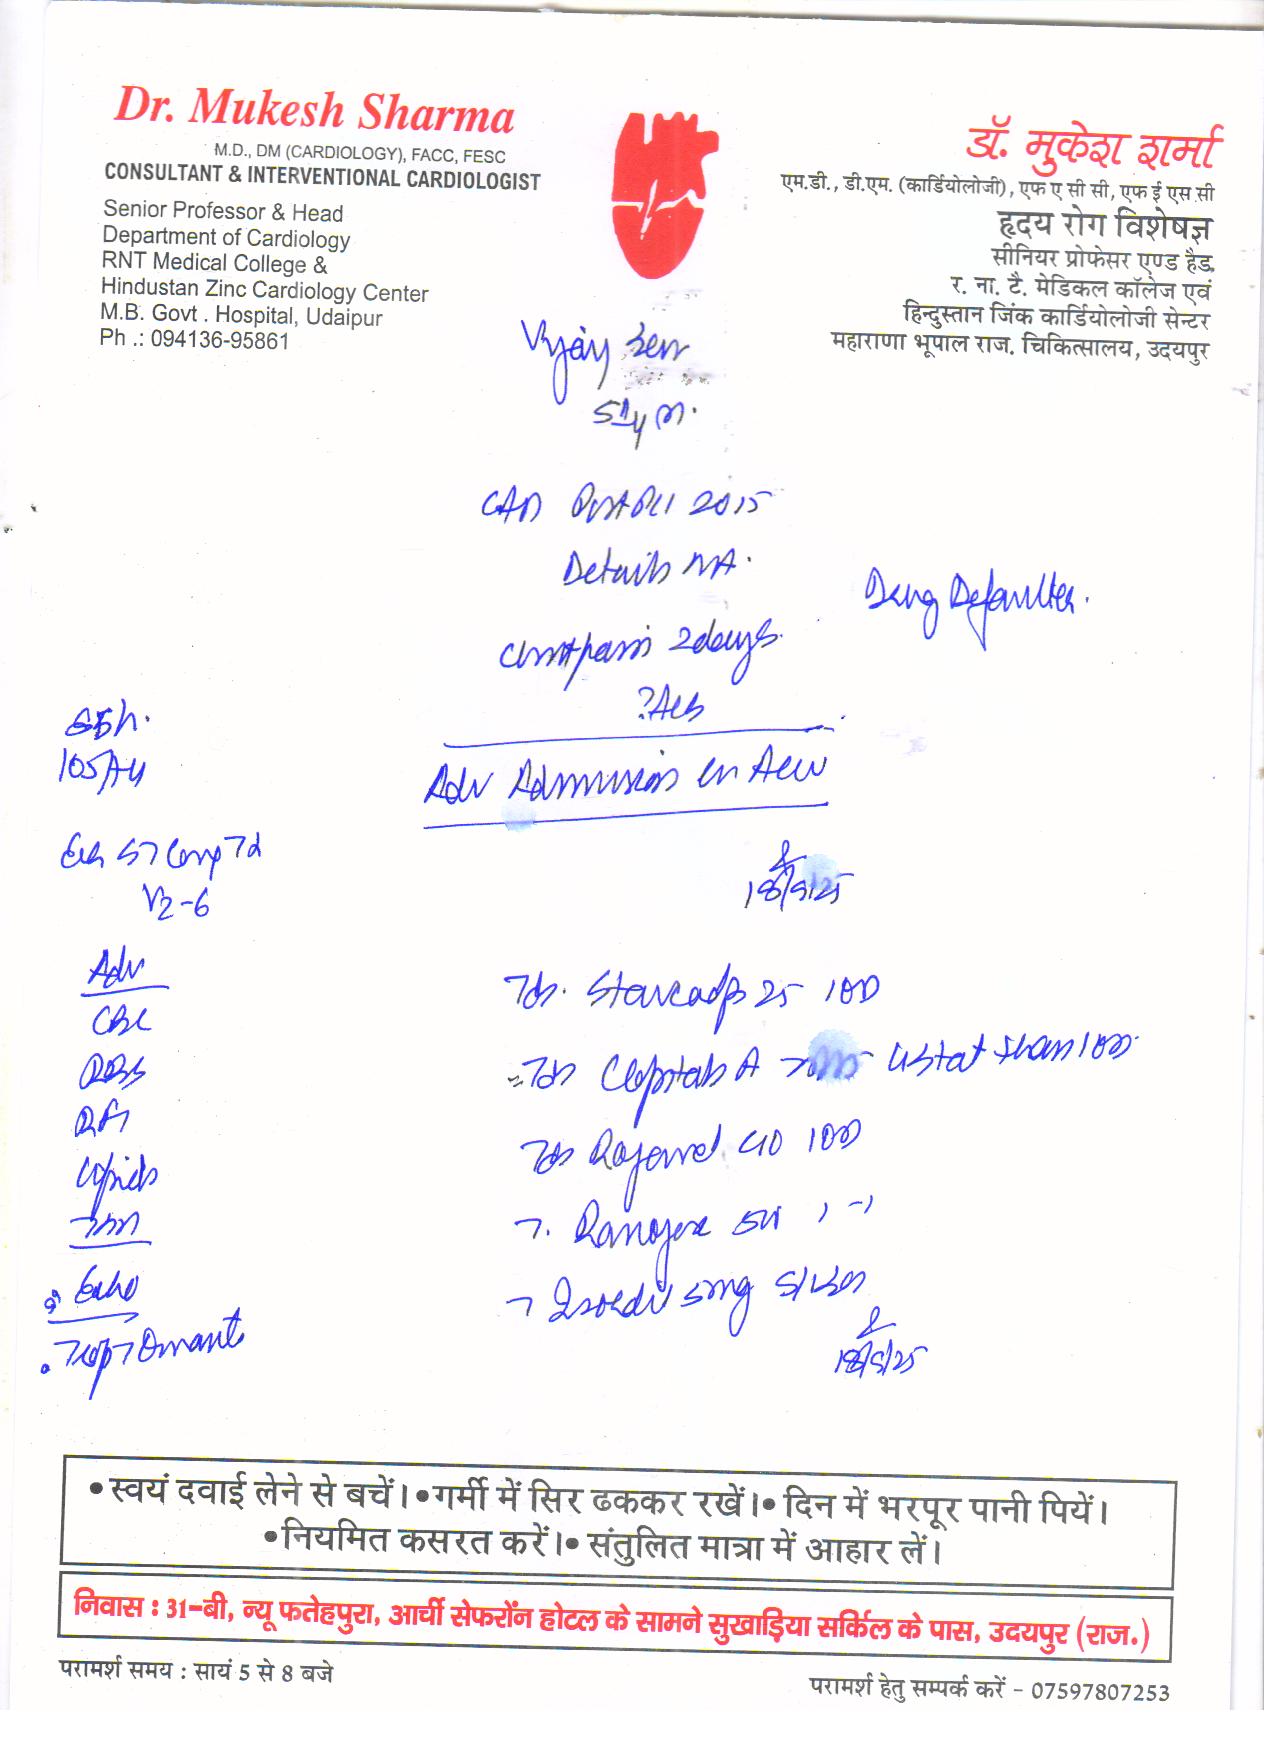 Dr. Mukesh Sharma
M.D., DM (CARDIOLOGY), FACC, FESC
CONSULTANT & INTERVENTIONAL CARDIOLOGIST
Senior Professor & Head
Department of Cardiology
RNT Medical College &
Hindustan Zinc Cardiology Center
M.B. Govt . Hospital, Udaipur
Ph .: 094136-95861
डॉ. मुकेश शर्मा
एम.डी., डी.एम. (कार्डियोलोजी), एफ ए सी सी, एफ ई एस सी
हृदय रोग विशेषज्ञ
सीनियर प्रोफेसर एण्ड हैड,
र. ना. टै. मेडिकल कॉलेज एवं
हिन्दुस्तान जिंक कार्डियोलोजी सेन्टर
महाराणा भूपाल राज. चिकित्सालय, उदयपुर
Vijay Sen
CAD Post PCI 2015
Details NA.
Drug Defaulter.
Chest pain 2 days.
? ACS
Adv Admission in
ST
V2-6
18/5/25
Adv
CBC
RBS
RFT
Lipids
Echo
Trop T
25 1OD
Clopitab A
40 1OD
Isordil 5mg
18/5/25
•स्वयं दवाई लेने से बचें।•गर्मी में सिर ढककर रखें।• दिन में भरपूर पानी पियें।
•नियमित कसरत करें।• संतुलित मात्रा में आहार लें।
निवास : 31-बी, न्यू फतेहपुरा, आर्ची सेफरोंन होटल के सामने सुखाड़िया सर्किल के पास, उदयपुर (राज.)
परामर्श समय : सायं 5 से 8 बजे
परामर्श हेतु सम्पर्क करें - 07597807253